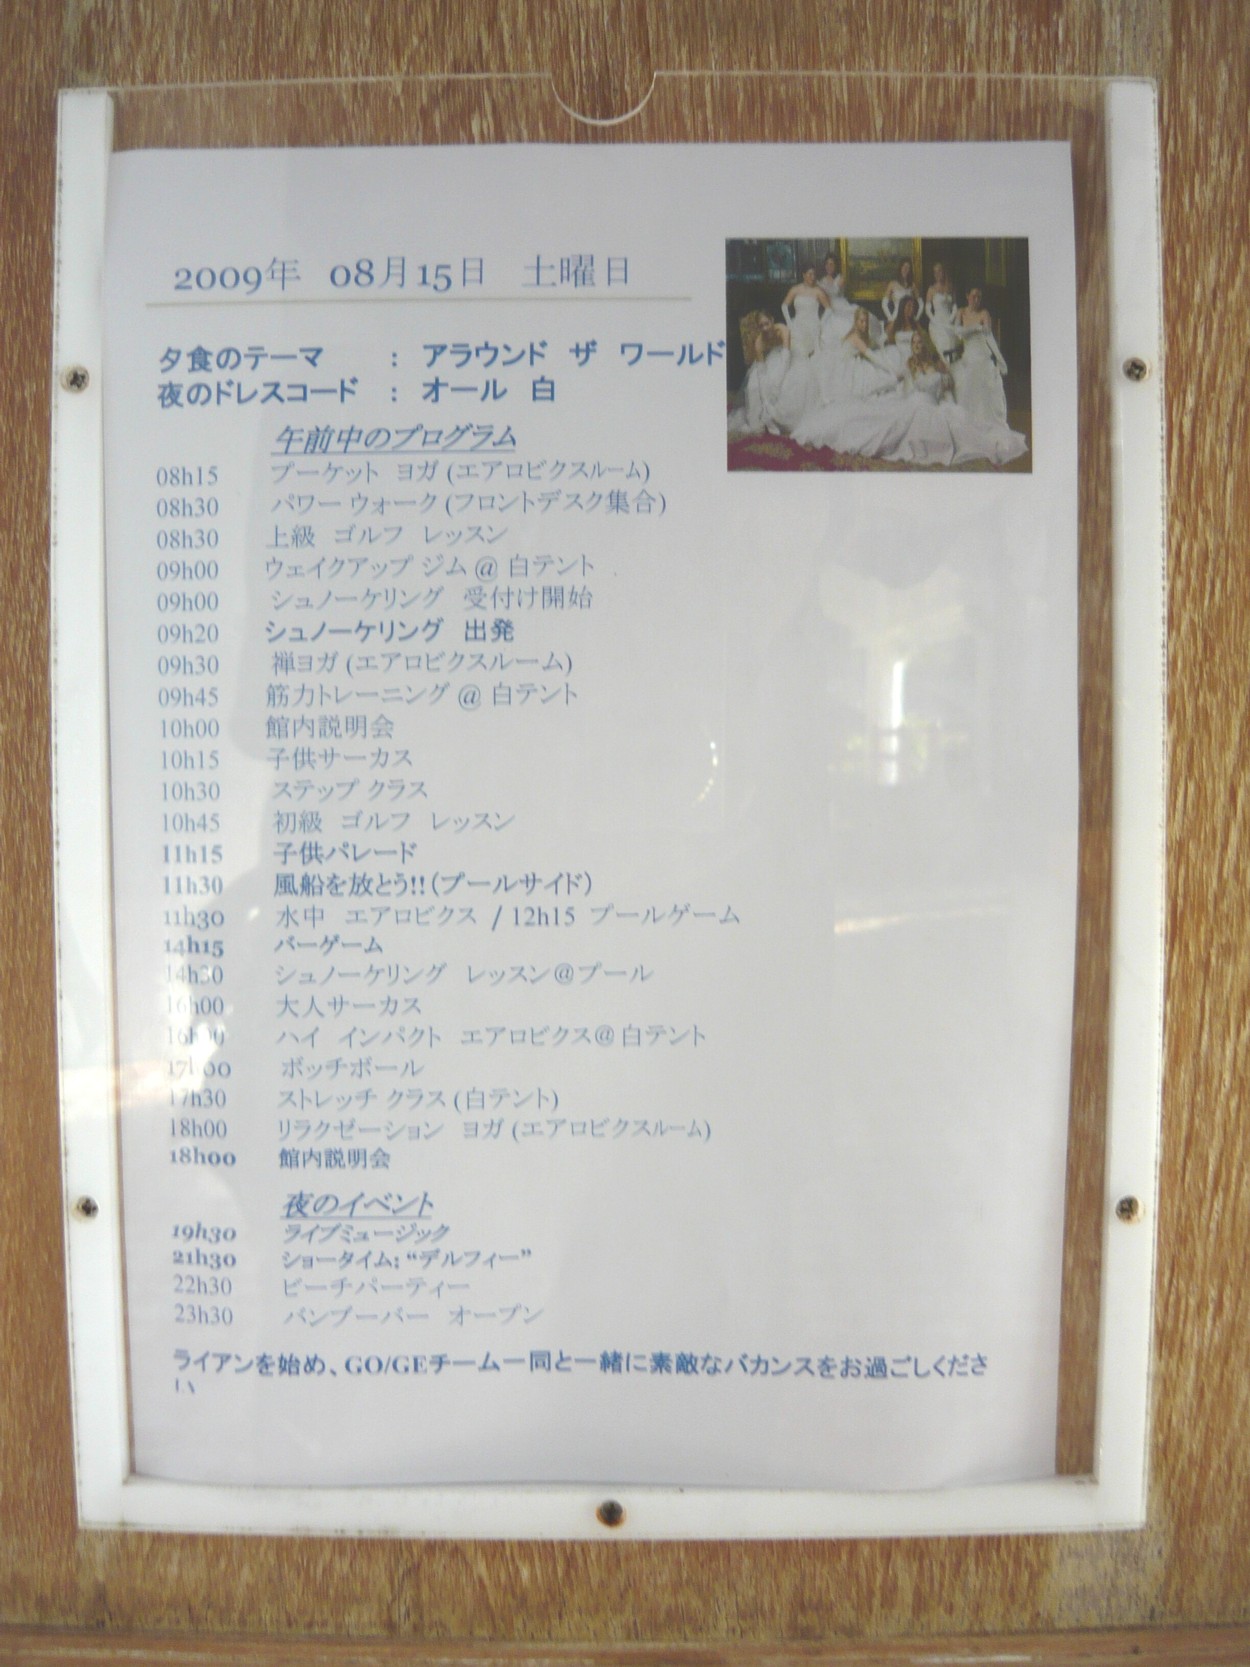 2009年 08月15日 土曜日
夕食のテーマ : アラウンド ザ ワールド
夜のドレスコード : オール 白
午前中のプログラム
08h15 プーケット ヨガ (エアロビクスルーム)
08h30 パワー ウォーク (フロントデスク集合)
08h30 上級 ゴルフ レッスン
09h00 ウェイクアップ ジム @ 白テント
09h00 シュノーケリング 受付け開始
09h20 シュノーケリング 出発
09h30 禅ヨガ (エアロビクスルーム)
09h45 筋力トレーニング @ 白テント
10h00 館内説明会
10h15 子供サーカス
10h30 ステップ クラス
10h45 初級 ゴルフ レッスン
11h15 子供パレード
11h30 風船を放とう!!(プールサイド)
11h30 水中 エアロビクス / 12h15 プールゲーム
14h15 バーゲーム
14h30 シュノーケリング レッスン@プール
16h00 大人サーカス
16h00 ハイ インパクト エアロビクス@白テント
17h00 ボッチボール
17h30 ストレッチ クラス (白テント)
18h00 リラクゼーション ヨガ (エアロビクスルーム)
18h00 館内説明会
夜のイベント
19h30 ライブミュージック
21h30 ショータイム: “デルフィー”
22h30 ビーチパーティー
23h30 バンブーバー オープン
ライアンを始め、GO/GEチーム一同と一緒に素敵なバカンスをお過ごしくださ
い